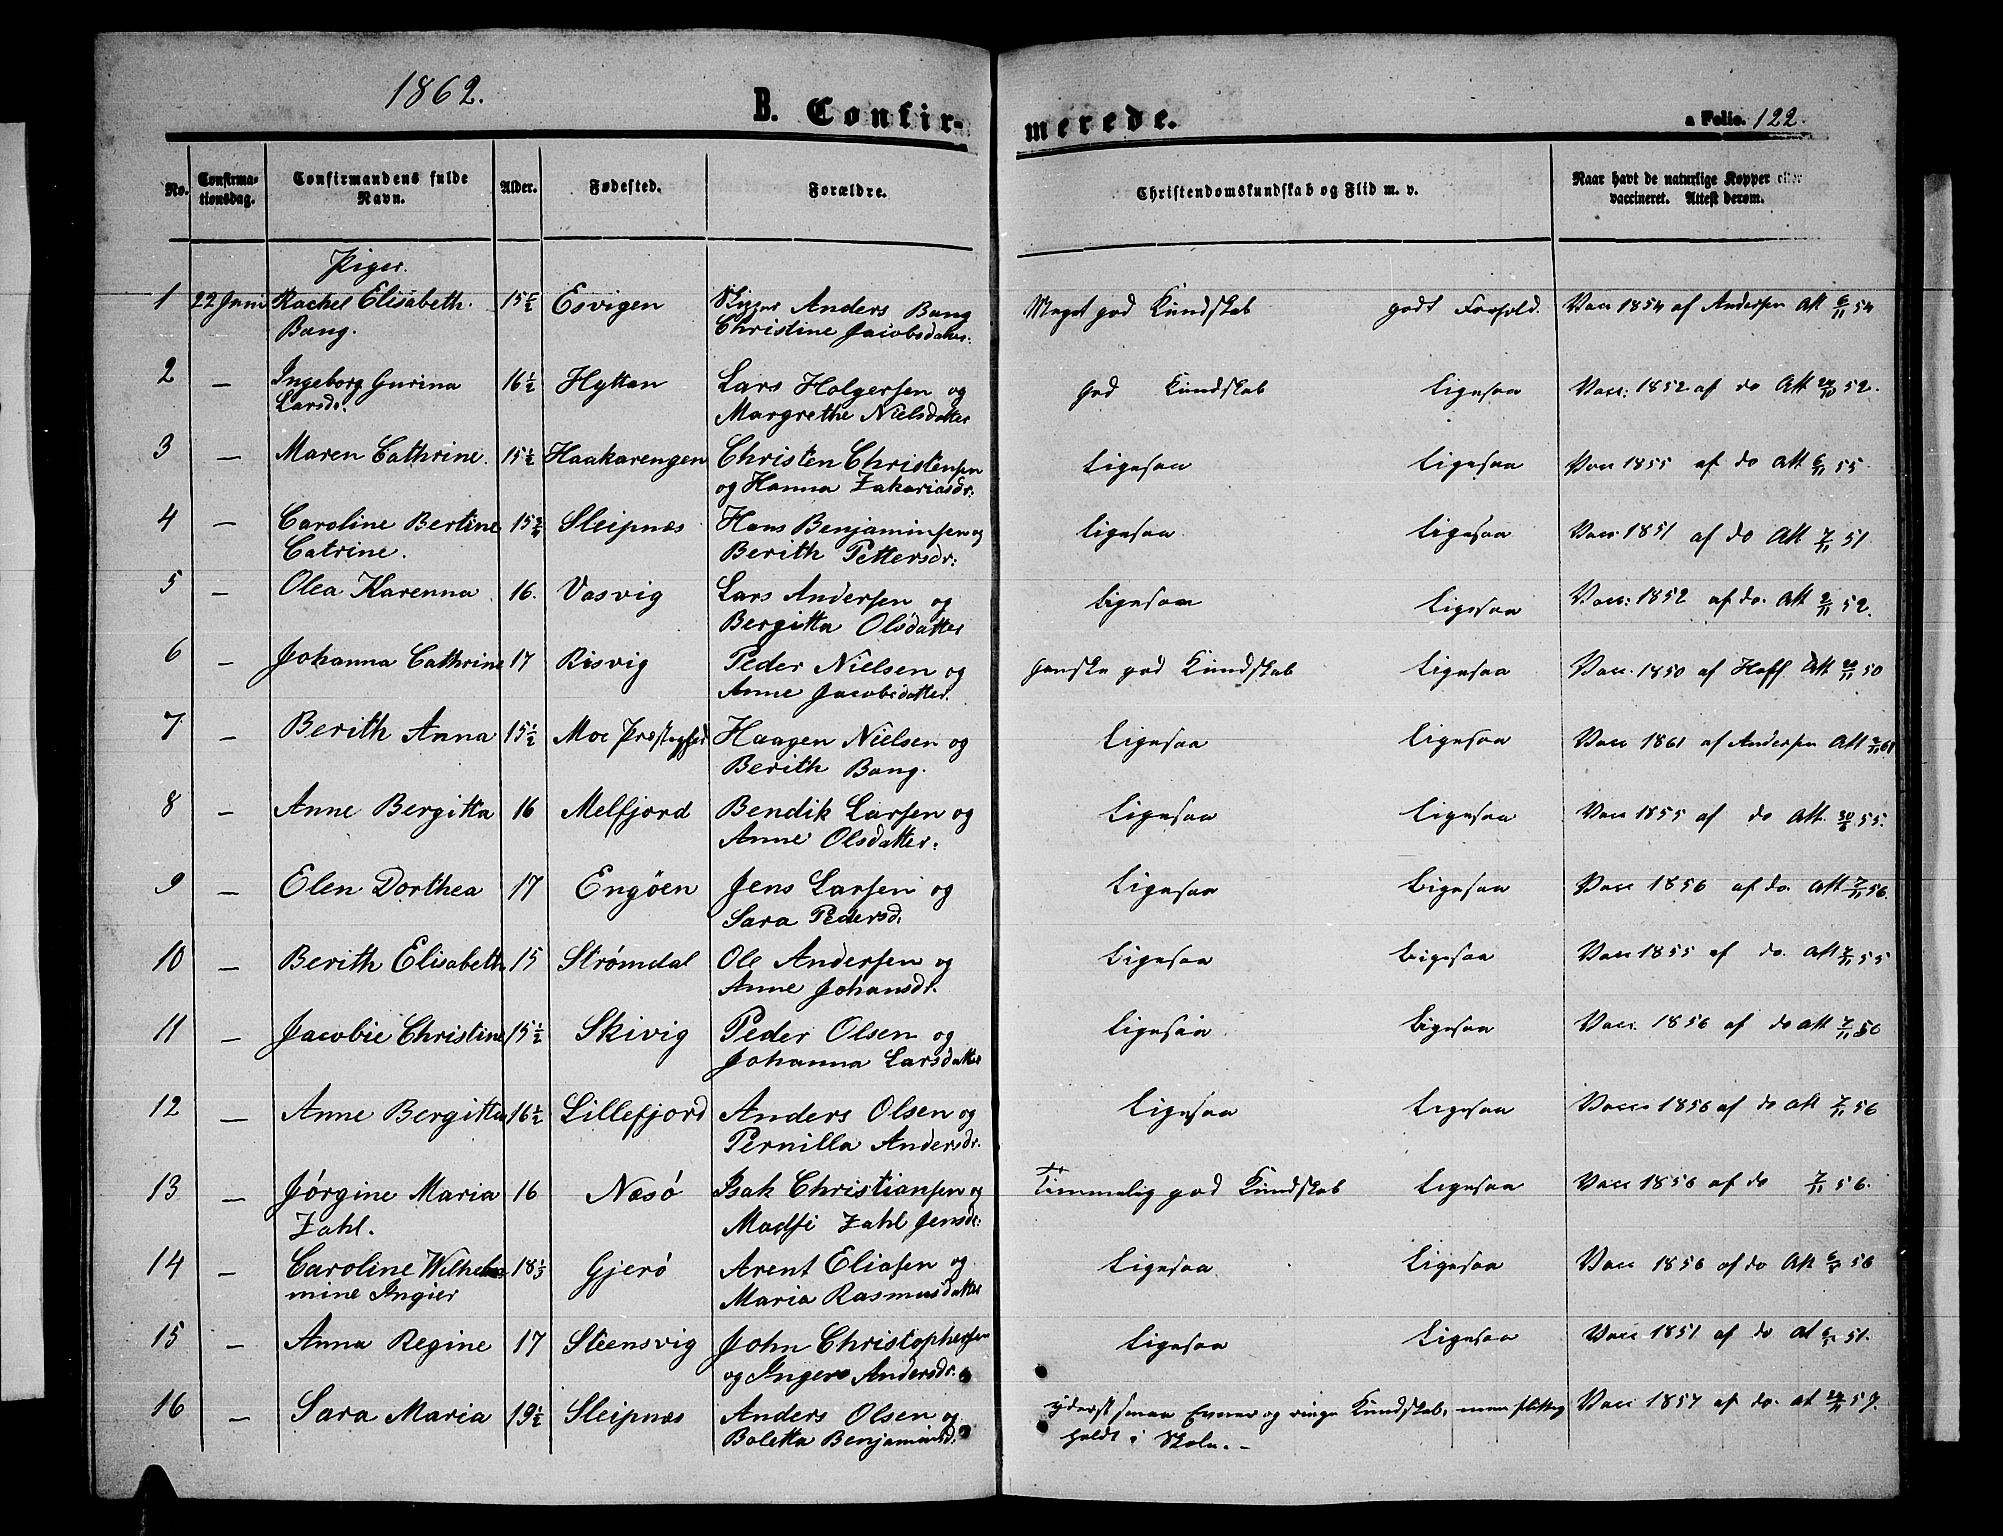 1862.
B. Confirmerede.
a Folio. 122.
No.
Confirmationsdag.
Confirmandens fulde Navn.
Alder.
Fødested.
Forældre.
Christendomskundskab og Flid m. v.
Naar havt de naturlige Kopper eller
vaccineret. Attest derom.
Piger.
1 22 Juni Rachel Elisabeth 15 Esvigen Anders Bang Meget god Kundskab godt Forhold. Vacc 1854 af Andersen Att 6/11 54
Bang. Christine Jacobsdatter
2 — Ingeborg Gurina 16½ Hyttan Lars Holgersen og god Kundskab Ligesaa Vacc: 1852 af do Att 52.
Larsdr. Margrethe Nielsdatter
3 — Maren Cathrine 15½ Haakarengen Christen Christensen Ligesaa Ligesaa Vacc 1855 af do Att 6/11 55.
og Hanna Zakariasdr:
4 — Caroline Bertine 15¾ Sleipnæs Hans Benjaminsen og Ligesaa Ligesaa Vacc 1851 af do Att 7/11 51
Catrine. Berith Pettersdr:
5 — Olea Karenna 16. Vasvig Lars Andersen og Ligesaa Ligesaa Vacc: 1852 af do. Att 2/11 52.
Bergitta Olsdatter
6 — Johanna Cathrine 17 Risvig Peder Nielsen og ganske god Kundskab Ligesaa Vacc. 1850 af Hoff Att 50
Anne Jacobsdatter.
7 — Berith Anna 15½ Moe Præstegjeld Haagen Nielsen og Ligesaa Ligesaa Vacc 1861 af Andersen Att 61
Berith Bang.
8 — Anne Bergitta 16 Melfjord Bendik Larsen og Ligesaa Ligesaa Vacc 1855 af do Att. 55.
Anne Olsdatter:
9 — Elen Dorthea 17 Engöen Jens Larsen og Ligesaa Ligesaa Vacc 1856 af do. Att 7/11 56.
Sara Pedersd:
10 — Berith Elisabeth 15 Strømdal Ole Andersen og Ligesaa Ligesaa Vacc 1855 af do. Att 55
Anne Johansdr.
11 — Jacobie Christine 15½ Skivig Peder Olsen og Ligesaa Ligesaa Vacc. 1856 af do Att 7/11 56
Johanna Larsdatter
12 — Anne Bergitta 16½ Lillefjord Anders Olsen og Ligesaa Ligesaa Vacc 1856 af do Att 7/11 56
Pernilla Andersdr.
13 — Jórgine Maria 16 Næsó Isak Christiansen og Temmelig god Kundskab Ligesaa Vacc 1856 af do 7/11 56.
Zahl. Madsi Zahl Jensdr:
14 — Caroline Wilhel 18⅓ Gjeró Arent Eliasen og Ligesaa Ligesaa Vacc 1856 af do Att 56
mine Ingier Maria Rasmusdatter
15 — Anna Regine 17 Steensvig John Christophersen Ligesaa Ligesaa Vacc 1851 af do at 51.
og Ingera Andersdr.
16 — Sara Maria 19½ Sleipnæs Anders Olsen og yderst smaa Evner og ringe Kundskab, men flittig Vacc 1857 af do. at 57.
Boletta Benjaminsd. holdt i Skole. -